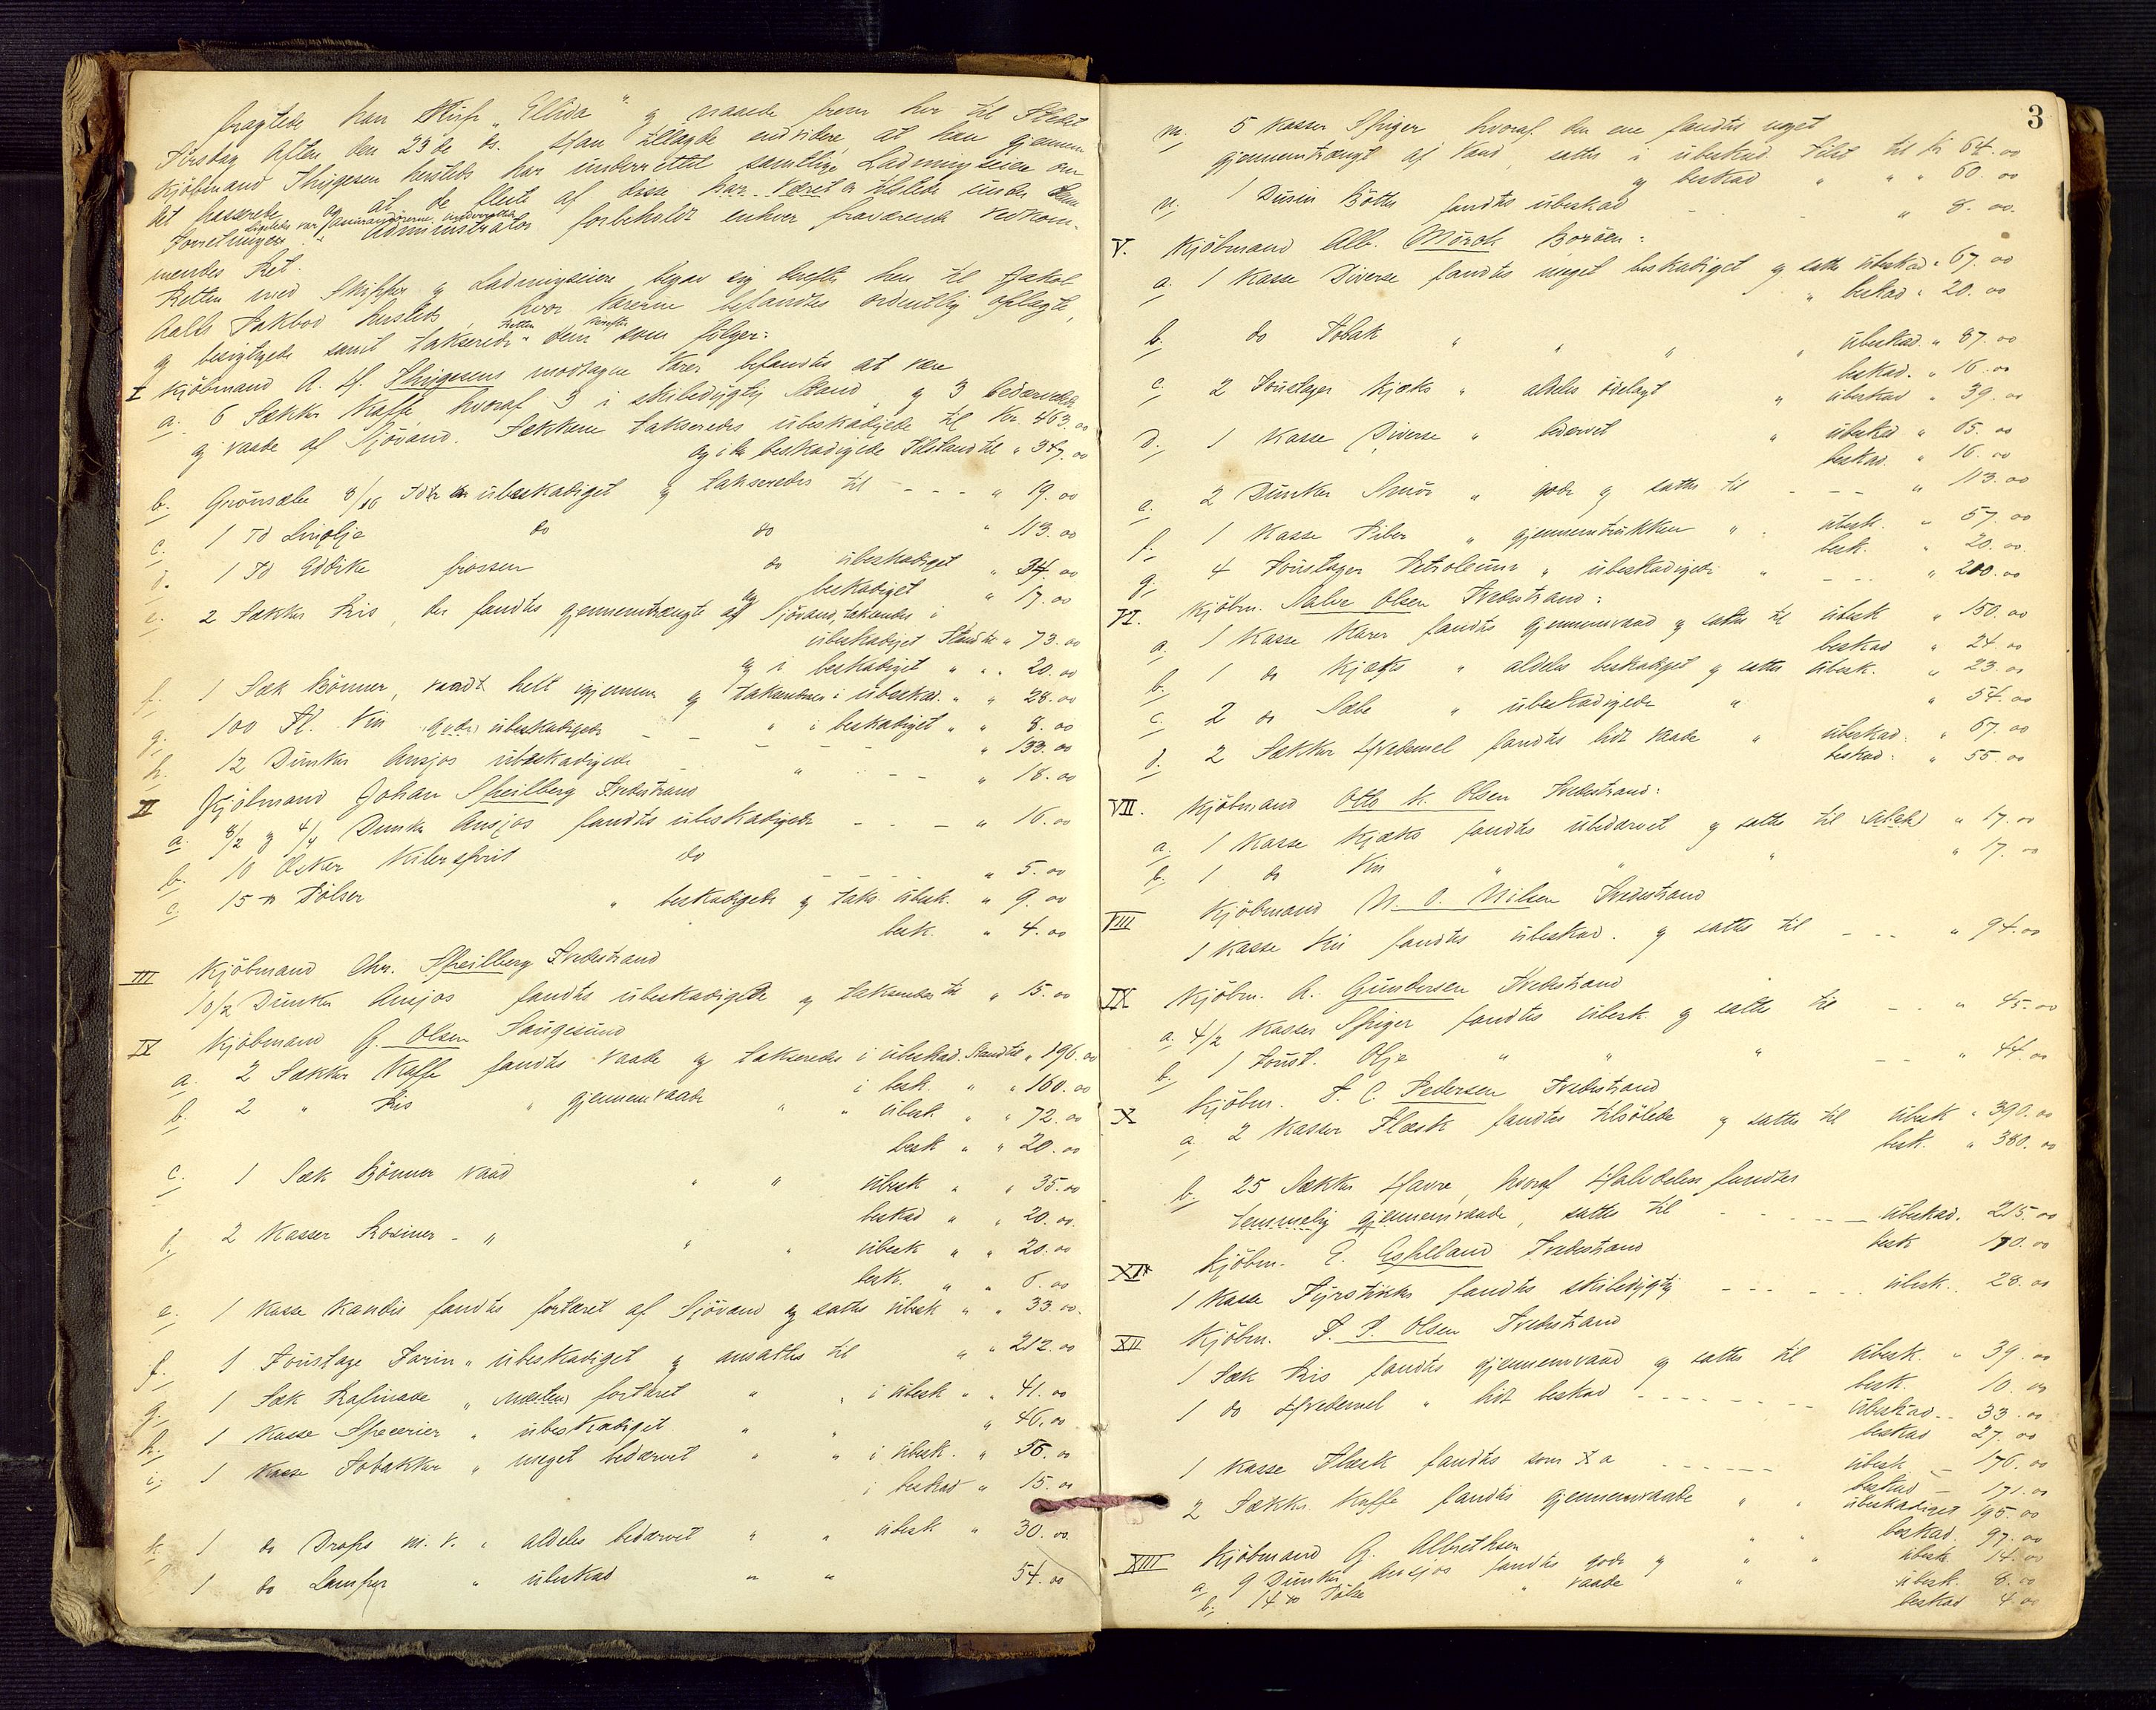 fragtede han Skirf "Ellida" og naaede frem her til Stedet
Tirsdag Aften den 23de ds. Han tillagde endvidere, at han gjennem
Kjöbmand Thygesen hersteds har underrettet samtlige Ladningseiere om
det passerede og at de fleste af disse har været tilstede under
Ligeledes var Assurandörerne underrettet
Forretningen. Administrator forbeholdt enhver fraværende Vedkom-
mendes Ret.
Retten med Skipper og Ladningseiere begav sig derefter hen til Jakob
Aalls Pakbod hersteds, hvor Varerne befandtes ordentlig oplagte,
Retten derefter
og besigtigede samt takserede dem som fölger:
I Kjöbmand A. H. Thygesens modtagne Varer befandtes at være
a. 6 Sækker Kaffe, hvoraf 3 i skibedygtig Stand og 3 bedærvede
og vaade af Sjövand. Sækkene takseredes übeskadigede til Kr. 463.00
og i beskadigede Tilstand til " 347.00
b. Grönsæbe 8/16 Td übeskadiget og takseredes til - - - " 19.00
c. 1 Td Linolje do do " 113.00
d. 1 Td Eddike frossen do übeskadiget " 34.00
og beskadiget " 17.00
e. 2 Sækker Ris, der fandtes gjennemtrængte af Sjövand, takseredes i
übeskadiget Stand til " 73.00
og i beskadiget " " 20.00
f. 1 Sæk Bönner, vaadt helt igjennem og takseredes i übeskad. " " 28.00
" i beskadiget " " 8.00
g. 100 Fl. Vin gode übeskadigede - - - - " 133.00
h. 12 Dunker Ansjos übeskadigede - " - - " 18.00
II Kjöbmand Johan Speilberg Tvedestrand
a. 8/2 og 4/4 Dunke Ansjos fandtes übeskadigede - - - " 16.00
b. 10 Æsker Kilersprit do - - - - " 5.00
c. 15 Pölser " beskadigede og taks. übesk. " 9.00
besk. " 4.00
III Kjöbmand Chr. Speilberg Tvedestrand
10/2 Dunker Ansjos fandtes übeskadigede og takseredes til " 15.00
IV Kjöbmand G. Olsen Saugesund
a. 2 Sækker Kaffe fandtes vaade og takseredes i übeskad. Stand til " 196.00
i besk. " " 160.00
b. 2 " Ris " gjennemvaade " " übesk. " " 72.00
besk " " 20.00
c. 1 Sæk Bönner vaad " " übesk " " 35.00
beskad " " 20.00
d. 2 Kasser Rosiner - " " " übesk " " 20.00
besk. " " 6.00
e. 1 Kasse Kandis fandtes fortæret af Sjövand og sattes übesk " " 33.00
f. 1 Foustage Farin " übeskadiget og ansattes til " " 212.00
g. 1 Sæk Rafinade " næsten fortæret " " i übesk " " 41.00
h. 1 Kasse Specerier " übeskadiget " " " 46.00
i. 1 Kasse Tobakker " meget bedærvet " " i übesk. " 56.00
i beskad " 15.00
k. 1 do Drops m. v. " aldeles bedærvet " " übesk " 30.00
1 do Lamper " übeskad " " 54.00
3
m. 5 Kasser Spiger hvoraf den ene fandtes noget
gjennemtrængt af Vand, sattes i übeskad. Tilst til Kr 64.00
og beskad " " " 60.00
n. 1 Dusin Bötter fandtes übeskad - - " 8.00
V. Kjöbmand Alb. Mörch Boröen:
a. 1 Kasse Diverse fandtes meget beskadiget og sattes übeskad " 67.00
" beskad " 20.00
b. do Tobak " " " " übeskad. " 87.00
beskad. " 16.00
c. 2 Foustager Kjæks " aldeles ödelagt " übeskad " 39.00
d. 1 Kasse Diverse " bedærvet " übeskad " 65.00
beskad. " 16.00
e. 2 Dunker Smör " gode og sattes til - - - " 113.00
f. 1 Kasse Piber " gjennemtrukken " " übesk. " 57.00
besk. " 20.00
g. 4 Foustager Petroleum " übeskadigede " - - - " 200.00
VI. Kjöbm. Salve Olsen Tvedestrand:
a. 1 Kasse Varer fandtes gjennemvaad og sattes til übesk " 150.00
beskad " 24.00
b. 1 do Kjæks " aldeles beskadiget og sattes übesk. " 23.00
c. 2 do Sæbe " übeskadigede " " 54.00
d. 2 Sækker Hvedemel fandtes lidt vaade " übeskad. " 67.00
beskad. " 55.00
VII. Kjöbmand Otto K. Olsen Tvedestrand:
a. 1 Kasse Kjæks fandtes übedærvet og sattes til " 17.00
b. 1 do Vin " " " " 17.00
VIII Kjöbmand N. O. Nilsen Tvedestrand
1 Kasse Vin fandtes übeskad. og sattes til - - - " 94.00
IX Kjöbm. A. Gundersen Tvedestrand
a. 4/2 Kasser Spiger fandtes übesk. og sattes til - - " 45.00
b. 1 Foust. Olje " " " - - " 44.00
X Kjöbm. F. C. Pedersen Tvedestrand
a. 2 Kasser Flæsk fandtes tilsölede og sattes til übesk " 390.00
besk. " 380.00
b. 25 Sækker Havre, hvoraf Halvdelen fandtes
temmelig gjennemvaade, sattes til - - - - - übeskad. 215.00
besk 170.00
XI Kjöbm. E. Espeland Tvedestrand
1 Kasse Fyrstikker fandtes skibedygtig - - - - - übesk. 28.00
XII Kjöbm. P. P. Olsen Tvedestrand
1 Sæk Ris fandtes gjennemvaad og sattes til übesk. " 39.00
besk. 10.00
1 do Hvedemel " lidt beskad - - - - - - übeskad - - 33.00
beskad 27.00
1 Kasse Flæsk fandtes som X a - - - - - - übesk - 176.00
beskad - 171.00
2 Sækker Kaffe fandtes gjennemvaade " " übeskadiget 195.00
beskad. 97.00
XIII Kjöbmand G. Albrethsen
a. 9 Dunker Ansjos fandtes gode og " " übesk. 14.00
b. 14 Pölse " vaade " übesk. 8.00
beskad 4.00